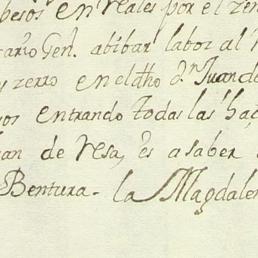 pesos en reales por el zer
cario Gen. abibar labor al
y zerro en el dho Dn Juan de
os entrando todas las haç
an de Vesa, es a saber
Bentura - la Magdalen